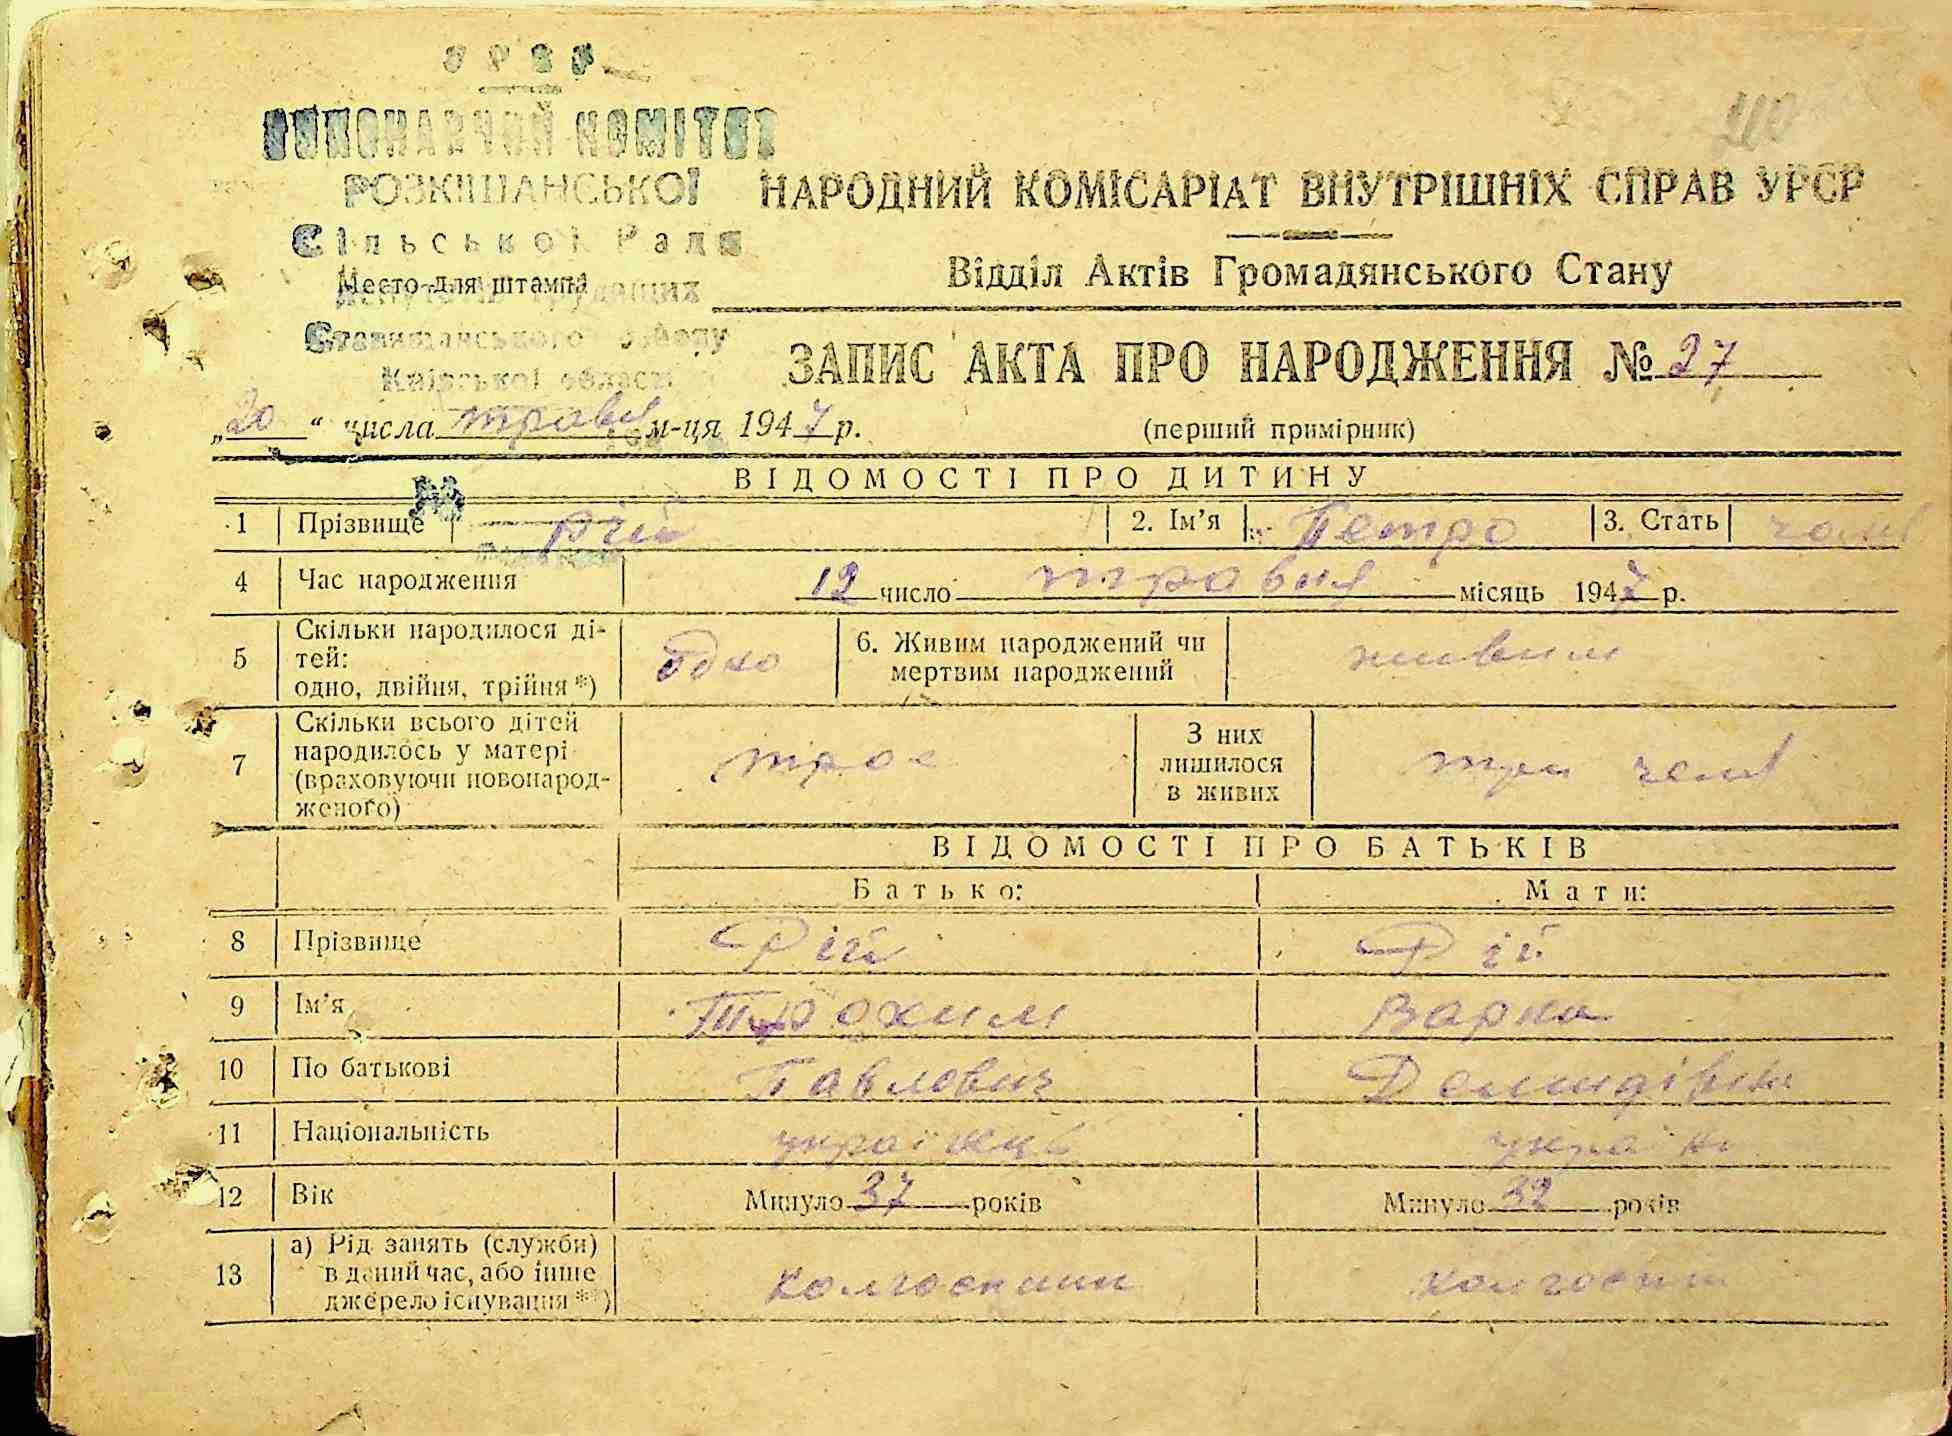 УРСР
ВИКОНАВЧИЙ КОМІТЕТ
РОЗКІШАНСЬКОЇ
Сільської Ради
Место для штампа
депутатів трудящих
Ставищанського району
Київської області
210
НАРОДНИЙ КОМІСАРІАТ ВНУТРІШНІХ СПРАВ УРСР
Відділ Актів Громадянського Стану
ЗАПИС АКТА ПРО НАРОДЖЕННЯ № 27
„20“ числа травня м-ця 1947 р. (перший примірник)
ВІДОМОСТІ ПРО ДИТИНУ
1 Прізвище Рій 2. Ім’я Петро 3. Стать чол
4 Час народження 12 число травня місяць 1947 р.
5 Скільки народилося ді-
тей:
одно, двійня, трійня *) одно 6. Живим народжений чи
мертвим народжений живим
7 Скільки всього дітей
народилось у матері
(враховуючи новонарод-
женого) троє З них
лишилося
в живих три чол
ВІДОМОСТІ ПРО БАТЬКІВ
Батько: Мати:
8 Прізвище Рій Рій
9 Ім’я Трохим Варка
10 По батькові Павлович Демидівна
11 Національність українець україн
12 Вік Минуло 37 років Минуло 32 років
13 а) Рід занять (служби)
в даний час, або інше
джерело існування **) колгоспник колгоспни